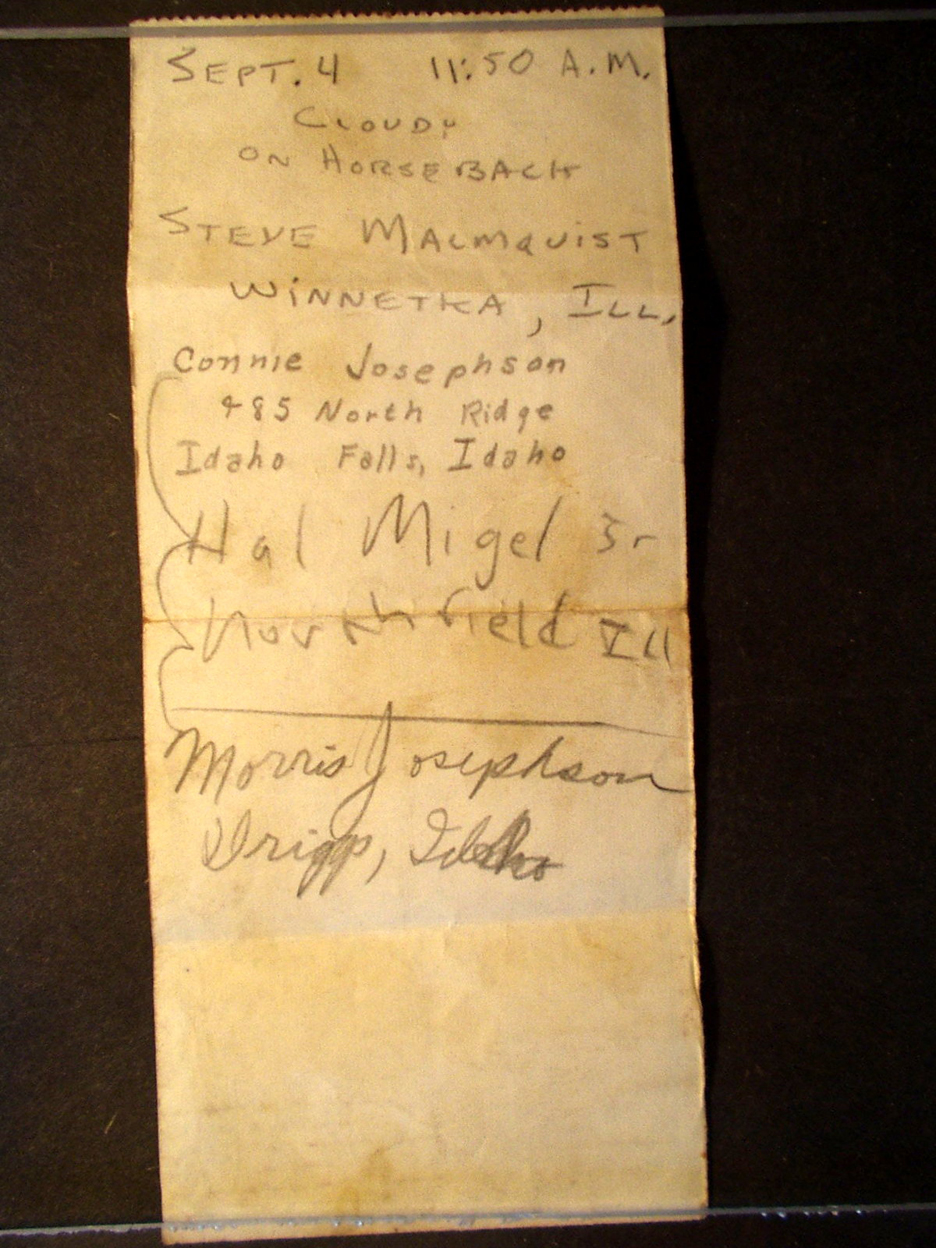 SEPT. 4 11:50 A.M.
CLOUDY
ON HORSEBACK
STEVE MALMQUIST
WINNETKA, ILL.
Connie Josephson
485 North Ridge
Idaho Falls, Idaho
Hal Migel Jr
Northfield Ill
Morris Josephson
Driggs, Idaho